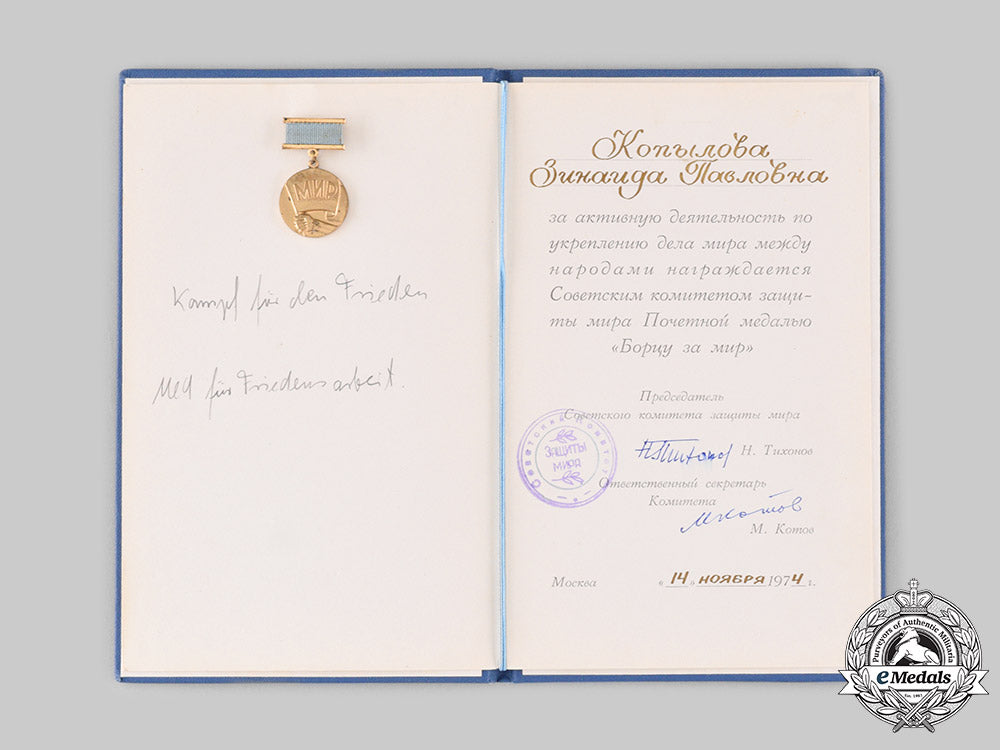 МИР
Kampf für den Frieden
Med für Friedensarbeit.
Копылова
Зинаида Павловна
за активную деятельность по
укреплению дела мира между
народами награждается
Советским комитетом защи-
ты мира Почетной медалью
«Борцу за мир»
Председатель
Советского комитета защиты мира
Н. Тихонов
Ответственный секретарь
Комитета
М. Котов
М. Котов
Москва « 14 » НОЯБРЯ 1974 г.
Советский Комитет
ЗАЩИТЫ
МИРА
Purveyors of Authentic Militaria
eMedals